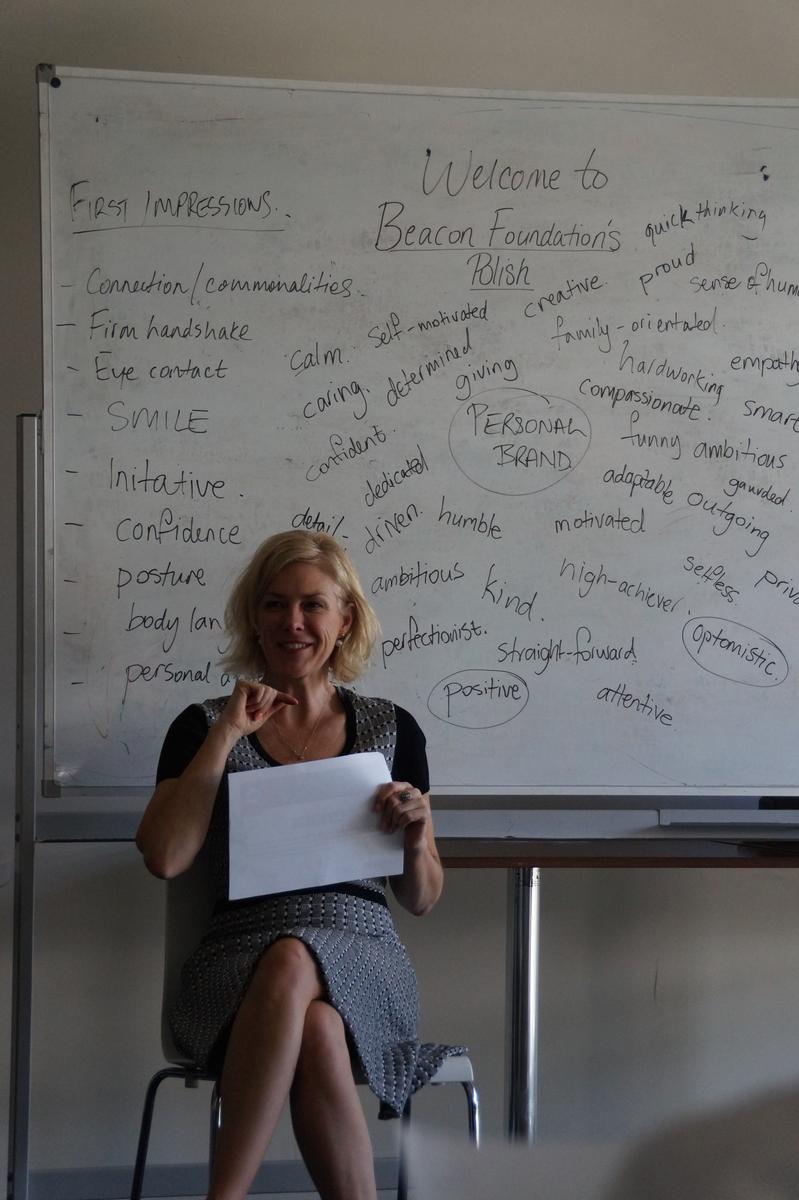 Welcome to
Beacon Foundation's
Polish
FIRST IMPRESSIONS..
- Connection/commonalities.
- Firm handshake
- Eye contact
- SMILE
- Initative.
- Confidence
- posture
- body lan
- personal a
PERSONAL
BRAND
quick thinking
proud
sense of hum
creative.
self-motivated
calm.
family-orientated.
determined
giving
hardworking
empath
caring.
compassionate.
smart
confident.
funny
ambitious
dedicated
adaptable
gaurded.
outgoing
detail-
driven.
humble
motivated
ambitious
kind.
high-achiever.
selfless.
priva
perfectionist.
straight-forward
optomistic.
positive
attentive